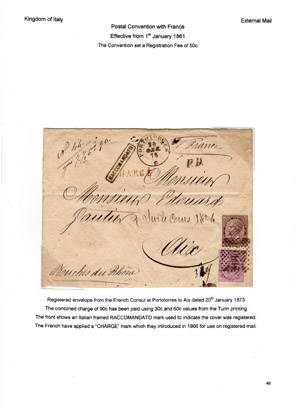 Kingdom of Italy
External Mail
Postal Convention with France
Effective from 1st January 1861
The Convention set a Registration Fee of 50c
France
RACCOMANDATO
P.D.
CHARGÉ
Monsieur
Monsieur Edouard
Gautier
Aix
Bouches du Rhône
Registered envelope from the French Consul at Portotorres to Aix dated 20th January 1873
The combined charge of 90c has been paid using 30c and 60c values from the Turin printing.
The front shows an Italian framed RACCOMANDATO mark used to indicate the cover was registered.
The French have applied a "CHARGE" mark which they introduced in 1865 for use on registered mail.
40